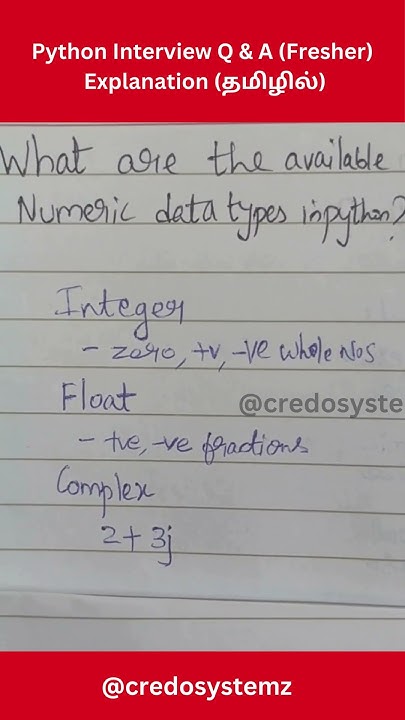 Python Interview Q & A (Fresher)
Explanation (தமிழில்)
What are the available
Numeric data types in python?
Integer
- zero, +v, -ve whole Nos
Float
@credosyste
- +ve, -ve fractions
Complex
2+3j
@credosystemz